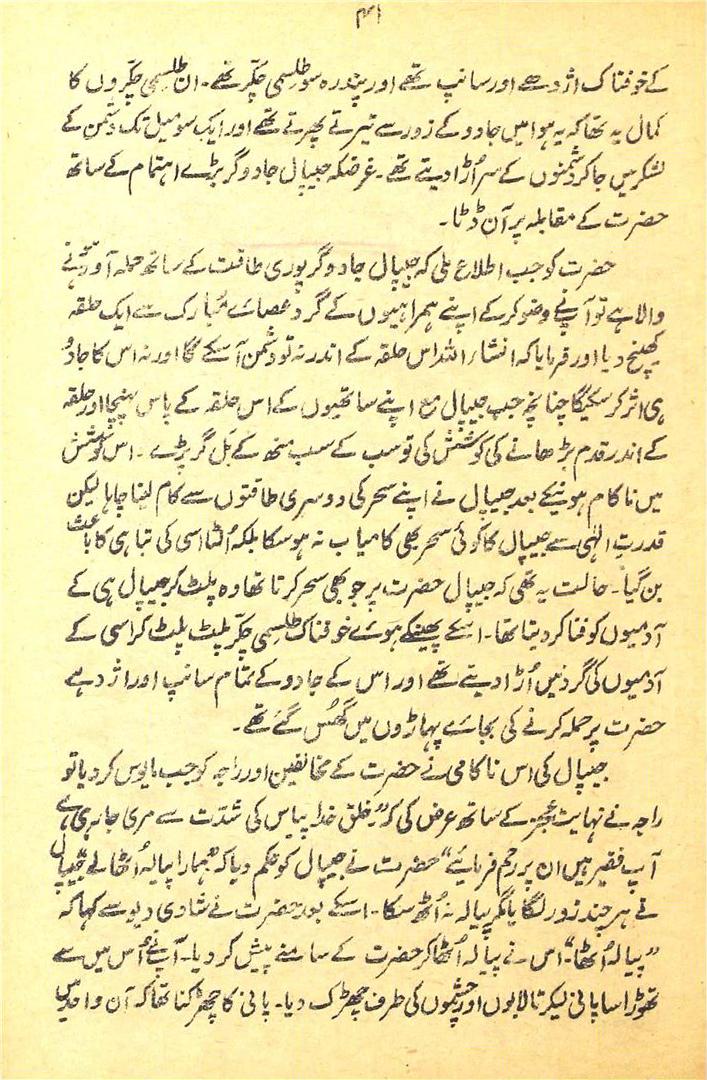 ۴۱
کے خوفناک اژدھے اور سانپ تھے اور پندرہ سو طلسمی چکّر تھے۔ ان طلسمی چکّروں کا
کمال یہ تھا کہ یہ ہوا میں جادو کے زور سے تیرتے پھرتے تھے اور ایک سو میل تک دشمن کے
لشکر میں جا کر دشمنوں کے سر اُڑا دیتے تھے۔ غرضکہ جیپال جادوگر بڑے اہتمام کے ساتھ
حضرت کے مقابلہ پر آن ڈٹا۔
حضرت کو جب اطلاع ملی کہ جیپال جادوگر پوری طاقت کے ساتھ حملہ آور ہونے
والا ہے تو آپنے وضو کر کے اپنے ہمراہیوں کے گرد عصائے مُبارک سے ایک حلقہ
کھینچ دیا اور فرمایا کہ انشاء اللہ اس حلقہ کے اندر نہ تو دشمن آ سکے گا اور نہ اس کا جادُو
ہی اثر کر سکیگا چنانچہ جب جیپال مع اپنے ساتھیوں کے اس حلقہ کے پاس پہنچا اور حلقہ
کے اندر قدم بڑھانے کی کوشش کی تو سب کے سب منھ کے بَل گر پڑے۔ اس کوشش
میں ناکام ہونیکے بعد جیپال نے اپنے سحر کی دوسری طاقتوں سے کام لینا چاہا لیکن
قدرتِ الٰہی سے جیپال کا کوئی سحر بھی کامیاب نہ ہو سکا بلکہ اُلٹا اسی کی تباہی کا باعث
بن گیا۔ حالت یہ تھی کہ جیپال حضرت پر جو بھی سحر کرتا تھا وہ پلٹ کر جیپال ہی کے
آدمیوں کو فنا کر دیتا تھا۔ اسکے پھینکے ہوئے خوفناک طلسمی چکّر پلٹ پلٹ کر اسی کے
آدمیوں کی گردنیں اُڑا دیتے تھے اور اس کے جادو کے تمام سانپ اور اژدہے
حضرت پر حملہ کرنے کی بجائے پہاڑوں میں گھُس گئے تھے۔
جیپال کی اس ناکامی نے حضرت کے مخالفین اور راجہ کو جب مایوس کر دیا تو
راجہ نے نہایت عجز کے ساتھ عرض کی کہ "خلقِ خدا پیاس کی شدّت سے مری جا رہی ہے
آپ فقیر ہیں ان پر رحم فرمائیے" حضرت نے جیپال کو حکم دیا کہ ہمارا پیالہ اُٹھا لے جیپال
نے ہر چند زور لگایا مگر پیالہ نہ اُٹھ سکا۔ اسکے بعد حضرت نے شادی دیو سے کہا کہ
"پیالہ اُٹھا"۔ اس نے پیالہ اُٹھا کر حضرت کے سامنے پیش کر دیا۔ آپنے اُس میں سے
تھوڑا سا پانی لیکر تالابوں اور چشموں کی طرف چھڑک دیا۔ پانی کا چھڑکنا تھا کہ آن واحد میں